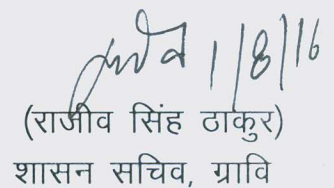 1/8/16
(राजीव सिंह ठाकुर)
शासन सचिव, ग्रावि